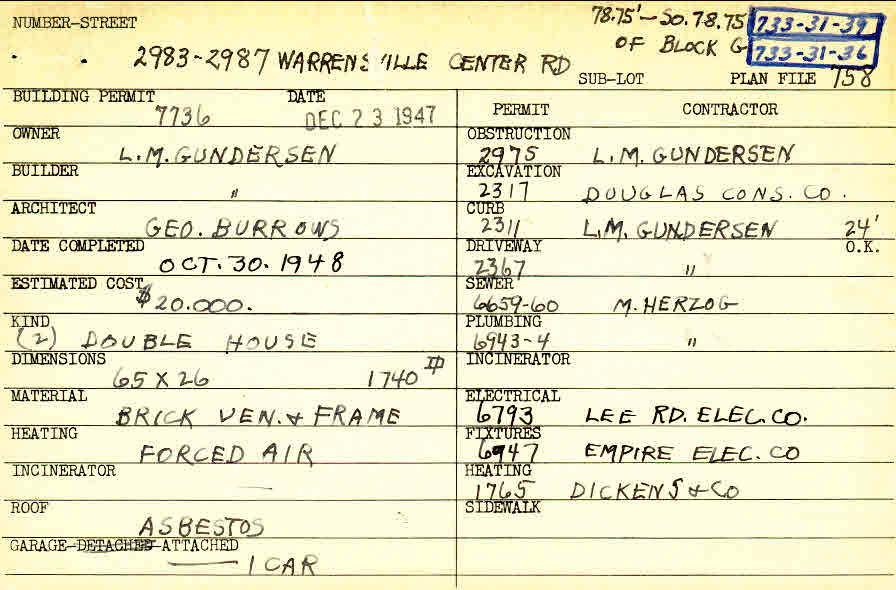 NUMBER-STREET
78.75' - SO. 78.75
733-31-39
OF BLOCK G
733-31-36
2983-2987 WARRENSVILLE CENTER RD
SUB-LOT PLAN FILE 758
BUILDING PERMIT DATE
7736 DEC 23 1947
OWNER
L.M. GUNDERSEN
BUILDER
"
ARCHITECT
GEO. BURROWS
DATE COMPLETED
OCT. 30. 1948
ESTIMATED COST
$20.000.
KIND
(2) DOUBLE HOUSE
DIMENSIONS
65 X 26 1740
MATERIAL
BRICK VEN. & FRAME
HEATING
FORCED AIR
INCINERATOR
ROOF
ASBESTOS
GARAGE-DETACHED-ATTACHED
1 CAR
PERMIT CONTRACTOR
OBSTRUCTION
2975 L.M. GUNDERSEN
EXCAVATION
2317 DOUGLAS CONS. CO.
CURB
2311 L.M. GUNDERSEN 24'
DRIVEWAY O.K.
2367 "
SEWER
6659-60 M. HERZOG
PLUMBING
6943-4 "
INCINERATOR
ELECTRICAL
6793 LEE RD. ELEC. CO.
FIXTURES
6947 EMPIRE ELEC. CO
HEATING
1765 DICKENS & CO
SIDEWALK